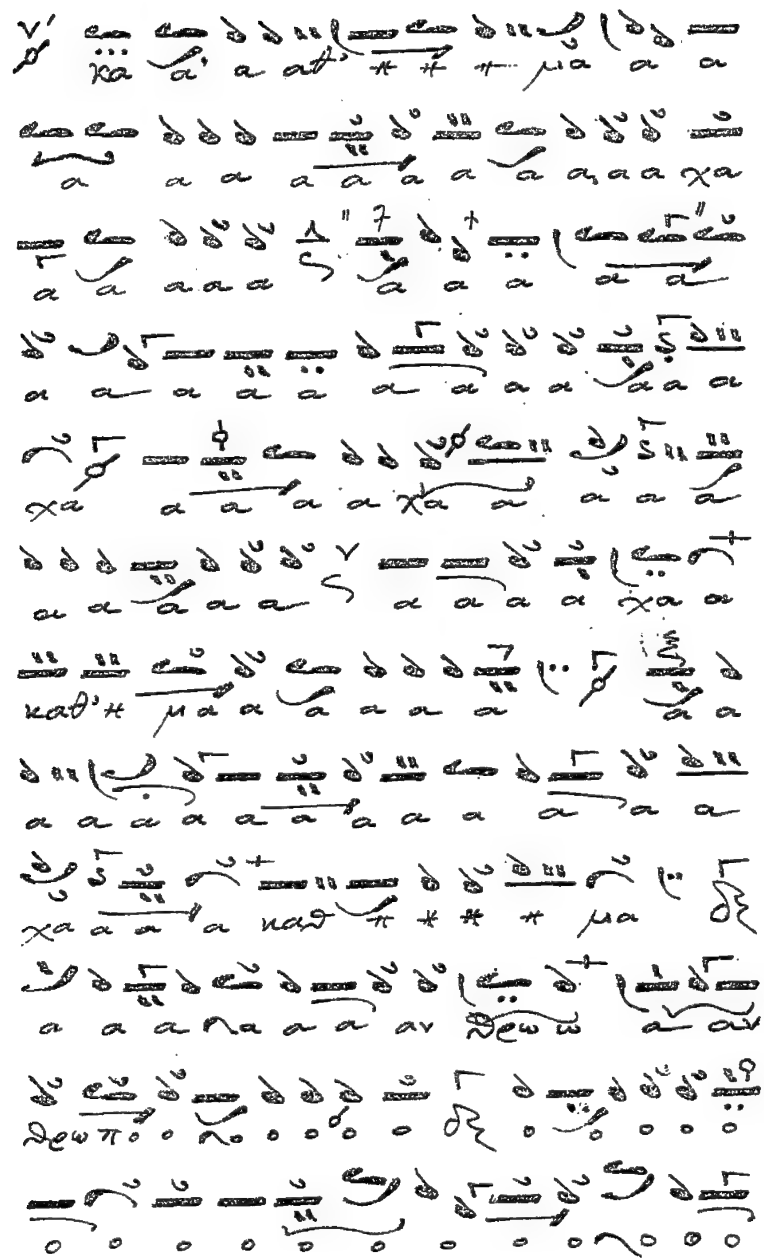 κα α' α αθ' η η η μα α α
α α α α α α α α α α α χα
α α α α α α α α α α
α α α α α α α α α α α α
χα α α α α χα α α α α
α α α α α α α α α χα α
καθ' η μα α α α α α α α
α α α α α α α α α α α α
χα α α α καθ η η η η μα
α α α λα α α αν θρω ω α αν
θρω πο ο λο ο ο ο ο ο ο ο ο ο
ο ο ο ο ο ο ο ο ο ο ο ο